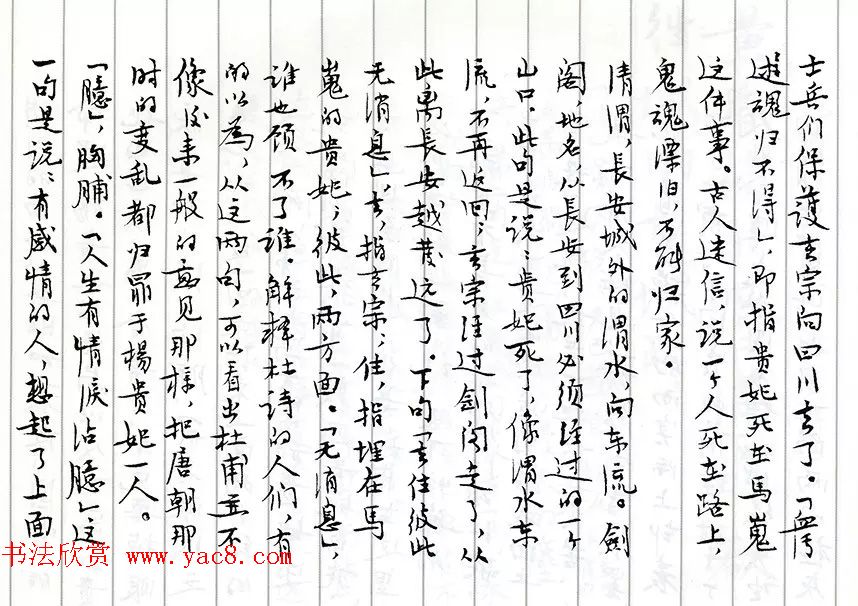 士兵们保護玄宗向四川去了。「血污
遊魂归不得」，即指貴妃死在馬嵬
这件事。古人迷信，说一个人死在路上，
鬼魂漂泊，不能归家。
清渭，長安城外的渭水，向东流。劍
阁，地名，从長安到四川必须经过的一个
山口。此句是说：貴妃死了，像渭水东
流，不再返回；玄宗经过劍阁走了，从
此离長安越發远了。下句「去住彼此
无消息」，去，指玄宗；住，指埋在馬
嵬的貴妃；彼此，两方面。「无消息」，
谁也顾不了谁。解释杜诗的人们，有
的以為，从这两句，可以看出杜甫並不
像後来一般的意见那样，把唐朝那
时的变乱都归罪于楊貴妃一人。
「臆」，胸脯。「人生有情淚沾臆」这
一句是说：有感情的人，想起了上面
书法欣赏 www.yac8.com